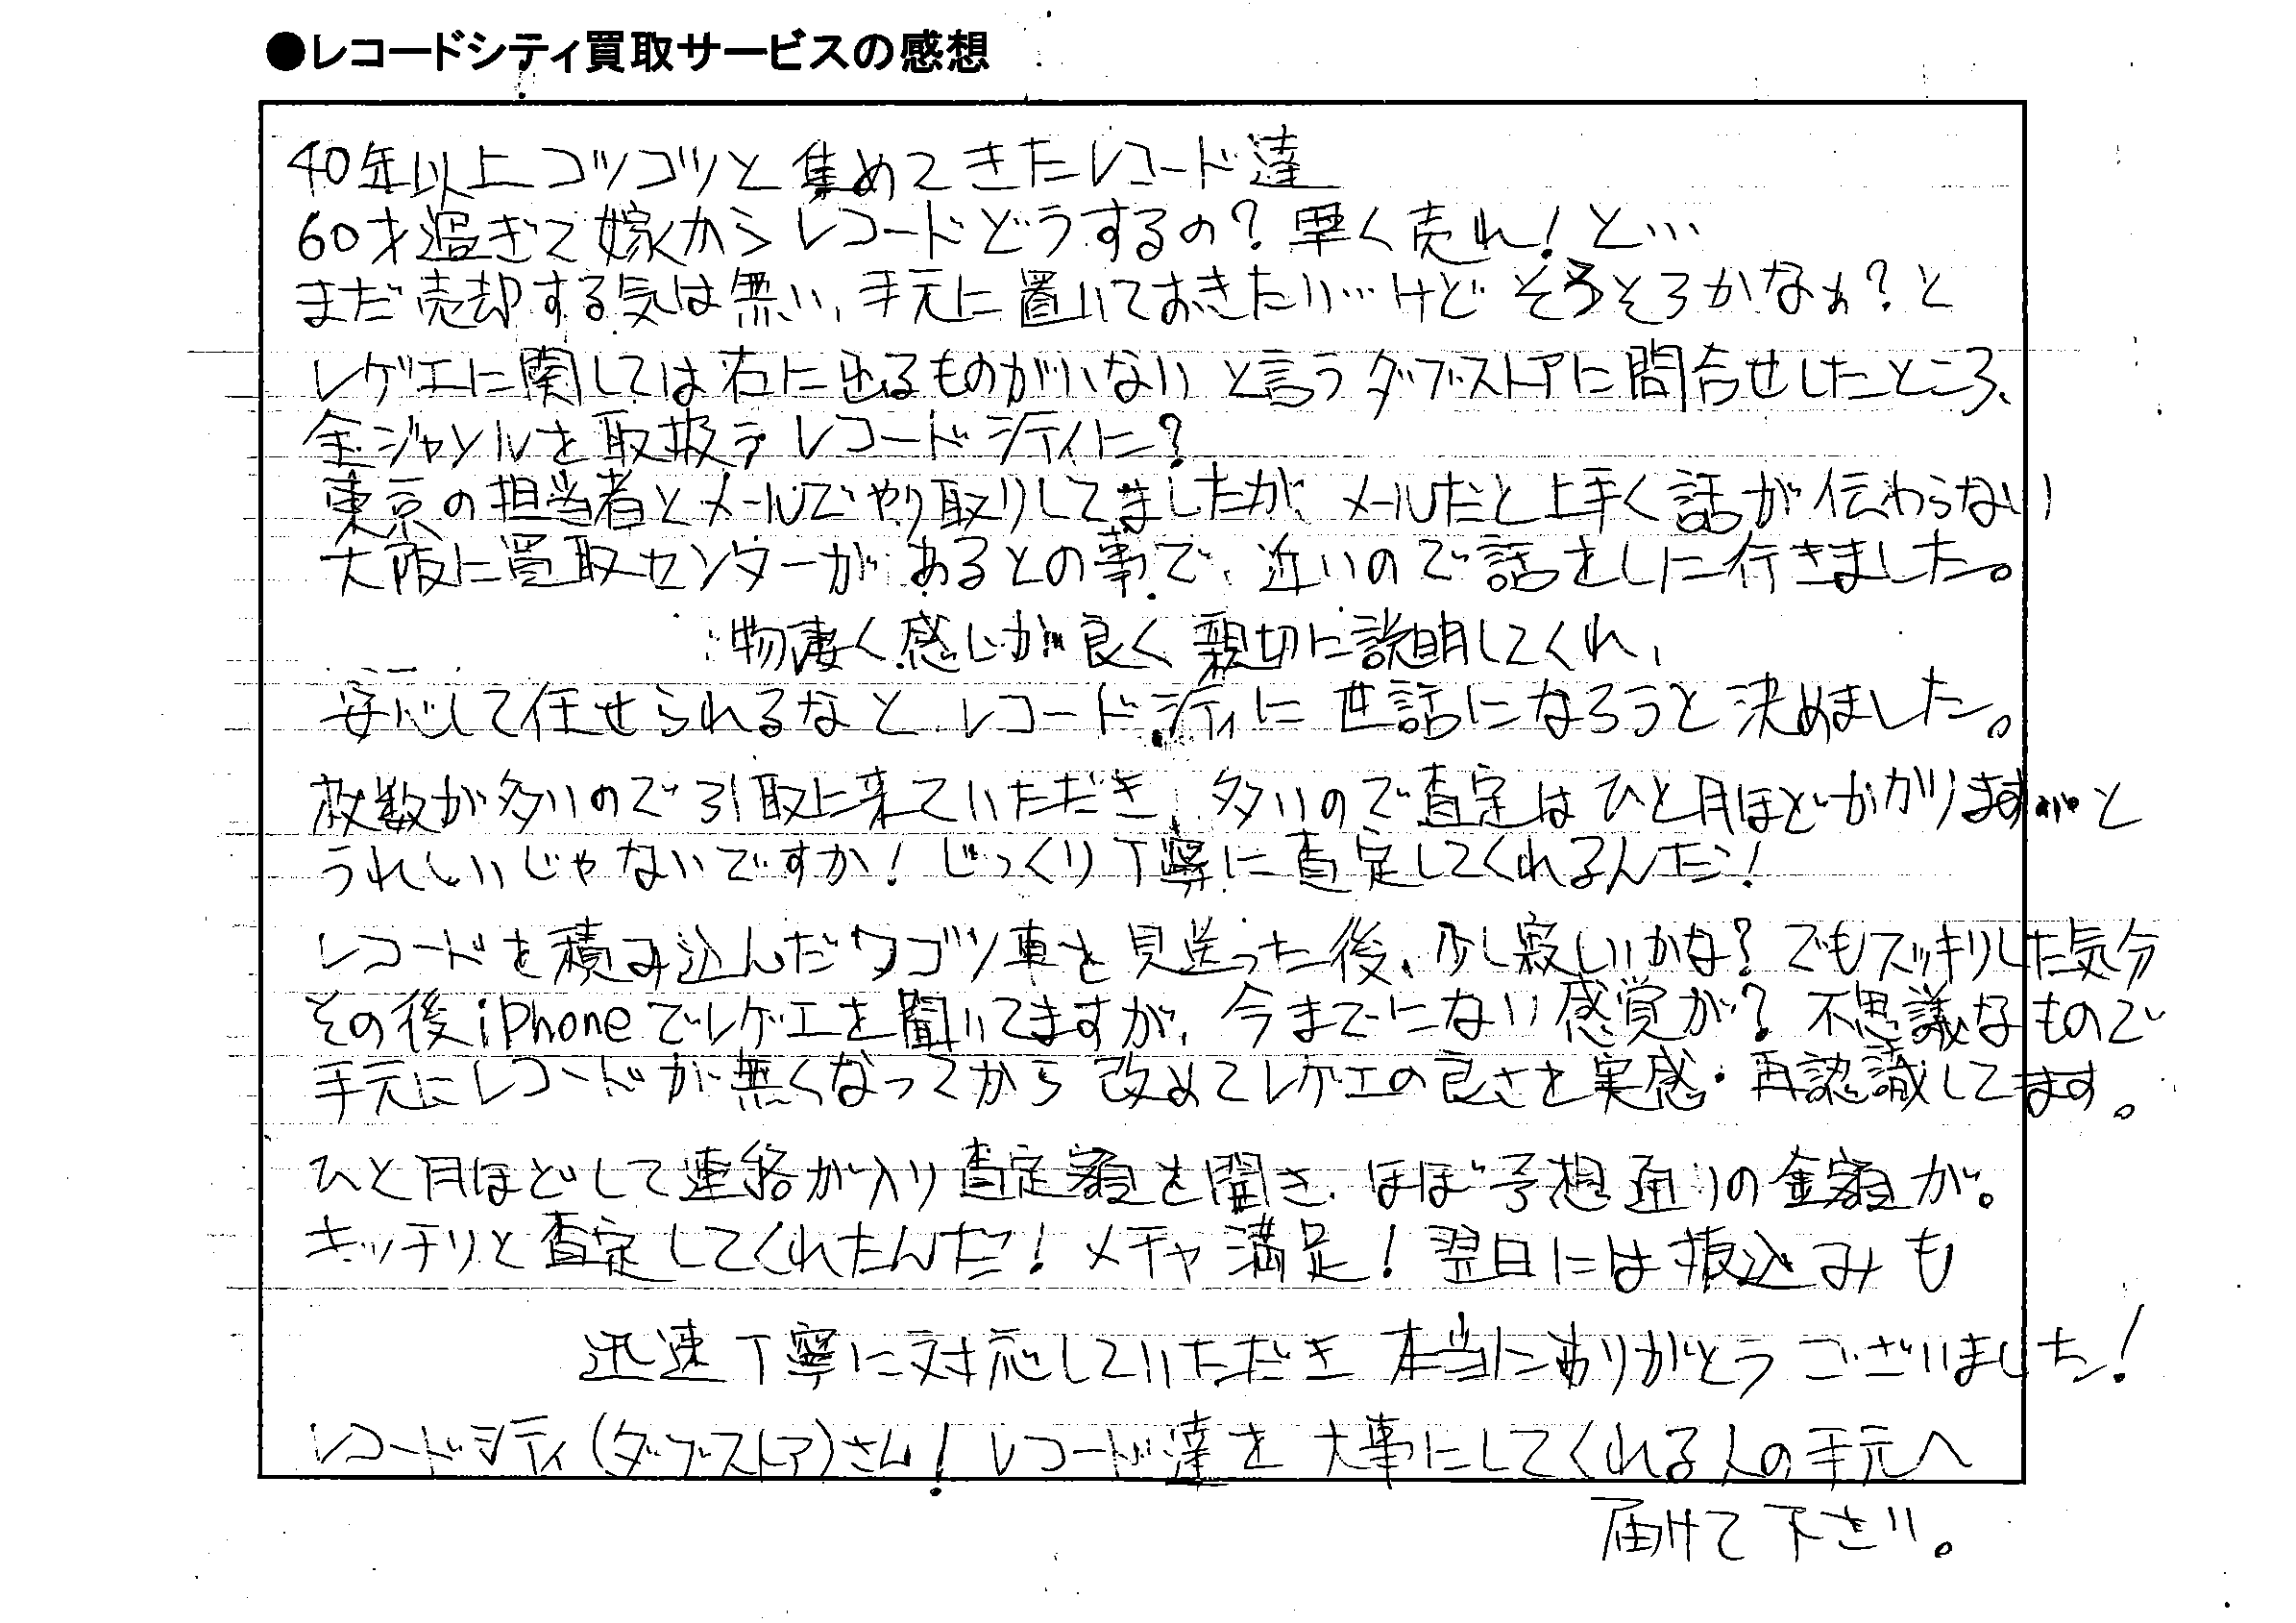 ●レコードシティ買取サービスの感想
40年以上コツコツと集めてきたレコード達
60才過ぎて嫁からレコードどうするの?早く売れ!と…
まだ売却する気は無い、手元に置いておきたい…けどそろそろかなぁ?と
レゲエに関しては右に出るものがいないと言うダブストアに問合せしたところ、
全ジャンルを取扱うレコードシティに?
東京の担当者とメールでやり取りしてましたが、メールだと上手く話が伝わらない
大阪に買取センターがあるとの事で、近いので話をしに行きました。
物凄く感じが良く親切に説明してくれ、
安心して任せられるなとレコードシティに世話になろうと決めました。
枚数が多いので引取に来ていただき、多いので査定はひと月ほどかかりますがと
うれしいじゃないですか!じっくり丁寧に査定してくれるんだ!
レコードを積み込んだワゴン車を見送った後、少し寂しいかな?でもスッキリした気分
その後iPhoneでレゲエを聞いてますが、今までにない感覚が?不思議なもので
手元にレコードが無くなってから改めてレゲエの良さを実感・再認識してます。
ひと月ほどして連絡が入り査定額を聞き、ほぼ予想通りの金額が。
キッチリと査定してくれたんだ!メチャ満足!翌日には振込みも
迅速丁寧に対応していただき本当にありがとうございました!
レコードシティ(ダブストア)さん!レコード達を大事にしてくれる人の手元へ
届けて下さい。